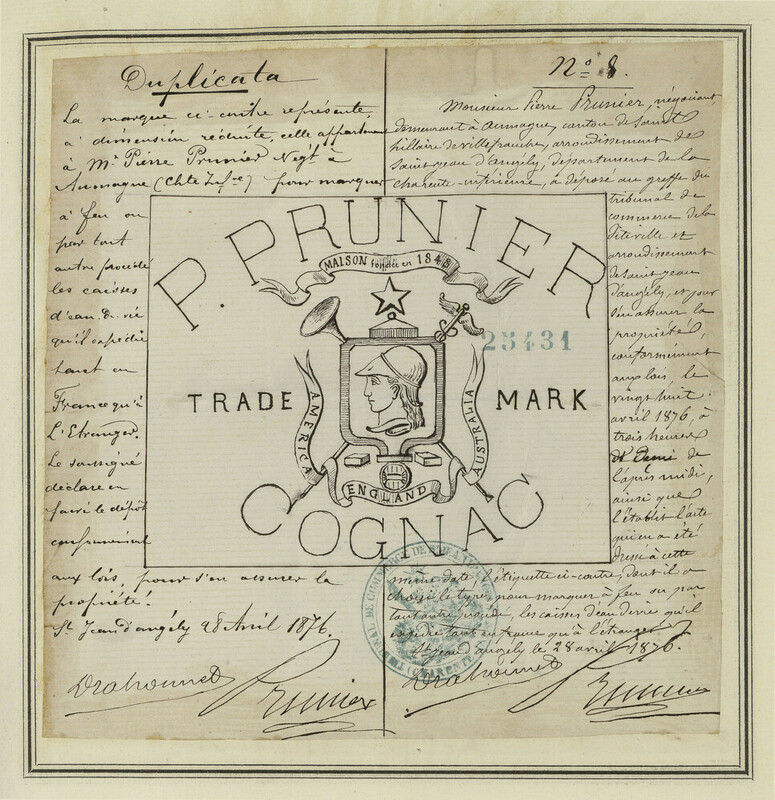 Duplicata
La marque ci-contre représente,
à dimension réduite, celle appartenant
à Mr. Pierre Prunier Négt. à
Aumagne (Chte Infre) pour marquer
à feu ou
par tout
autre procédé
les caisses
d'eau de vie
qu'il expédie
tant en
France qu'à
L'Etranger.
Le soussigné
déclare en
faire le dépôt
conformément
aux lois, pour s'en assurer la
propriété.
St Jean d'angély 28 Avril 1876.
Prunier
No 8.
Monsieur Pierre Prunier, négociant,
demeurant à Aumagne, canton de Saint
hilaire de villefranche, arrondissement de
Saint jean d'angély, département de la
charente-inférieure, a déposé au greffe du
tribunal de
commerce de la
dite ville et
arrondissement
de Saint jean
d'angély, et pour
s'en assurer la
propriété,
conformément
aux lois, le
vingt huit
avril 1876, à
trois heures
et demi de
l'après midi,
ainsi que
l'établit l'acte
qui en a été
dressé à cette
même date, l'étiquette ci-contre, dont il a
choisi le type, pour marquer à feu ou par
tout autre procédé, les caisses d'eau de vie qu'il
expédie tant en france qu'à l'étranger.
St jean d'angély le 28 avril 1876.
Prunier
P. PRUNIER
MAISON fondée en 1848
25431
TRADE MARK
AMERICA
AUSTRALIA
ENGLAND
COGNAC